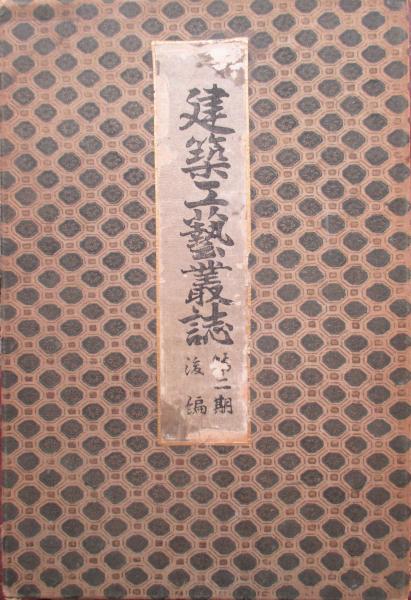 建築工藝叢誌
第二期
後編